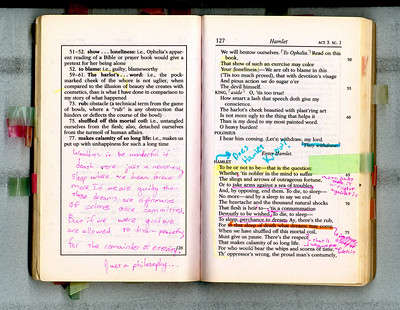 51-52. show... loneliness: i.e., Ophelia's appar-
ent reading of a Bible or prayer book would give a
pretext for her being alone
52. to blame: i.e., guilty, blameworthy
59-61. The harlot's... word: i.e., the pock-
marked cheek of the whore is not uglier, when
compared to the illusion of beauty she creates with
cosmetics, than is what I have done in comparison to
my story of what happened
73. rub: obstacle (a technical term from the game
of bowls, where a "rub" is any obstruction that
hinders or deflects the course of the bowl)
75. shuffled off this mortal coil: i.e., untangled
ourselves from the flesh; also, detached ourselves
from the turmoil of human affairs
77. makes calamity of so long life: i.e., makes us
put up with unhappiness for such a long time
Wouldn't it be wonderful if
death were like a never-
Sleep where we dream
more if we are guilty then
those dreams are
of crimes once committed
But if we were good we
are allowed to dream peacefully
for the remainder of eternity.
126
Just a philosophy...
127 Hamlet ACT 3. SC. 1
We will bestow ourselves. To Ophelia. Read on this
book,
That show of such an exercise may color 50
Your loneliness.—We are oft to blame in this
('Tis too much proved), that with devotion's visage
And pious action we do sugar o'er
The devil himself.
KING, aside O, 'tis too true! 55
How smart a lash that speech doth give my
conscience.
The harlot's cheek beautied with plast'ring art
Is not more ugly to the thing that helps it
Than is my deed to my most painted word. 60
O heavy burden!
POLONIUS
I hear him coming. Let's withdraw, my lord.
They withdraw.
Enter Hamlet.
HAMLET
To be or not to be—that is the question:
Whether 'tis nobler in the mind to suffer 65
The slings and arrows of outrageous fortune,
Or to take arms against a sea of troubles
And, by opposing, end them. To die, to sleep—
No more—and by a sleep to say we end
The heartache and the thousand natural shocks 70
That flesh is heir to—'tis a consummation
Devoutly to be wished. To die, to sleep—
To sleep, perchance to dream. Ay, there's the rub,
For in that sleep of death what dreams may come,
When we have shuffled off this mortal coil, 75
Must give us pause. There's the respect
That makes calamity of so long life.
For who would bear the whips and scorns of time,
Th' oppressor's wrong, the proud man's contumely,